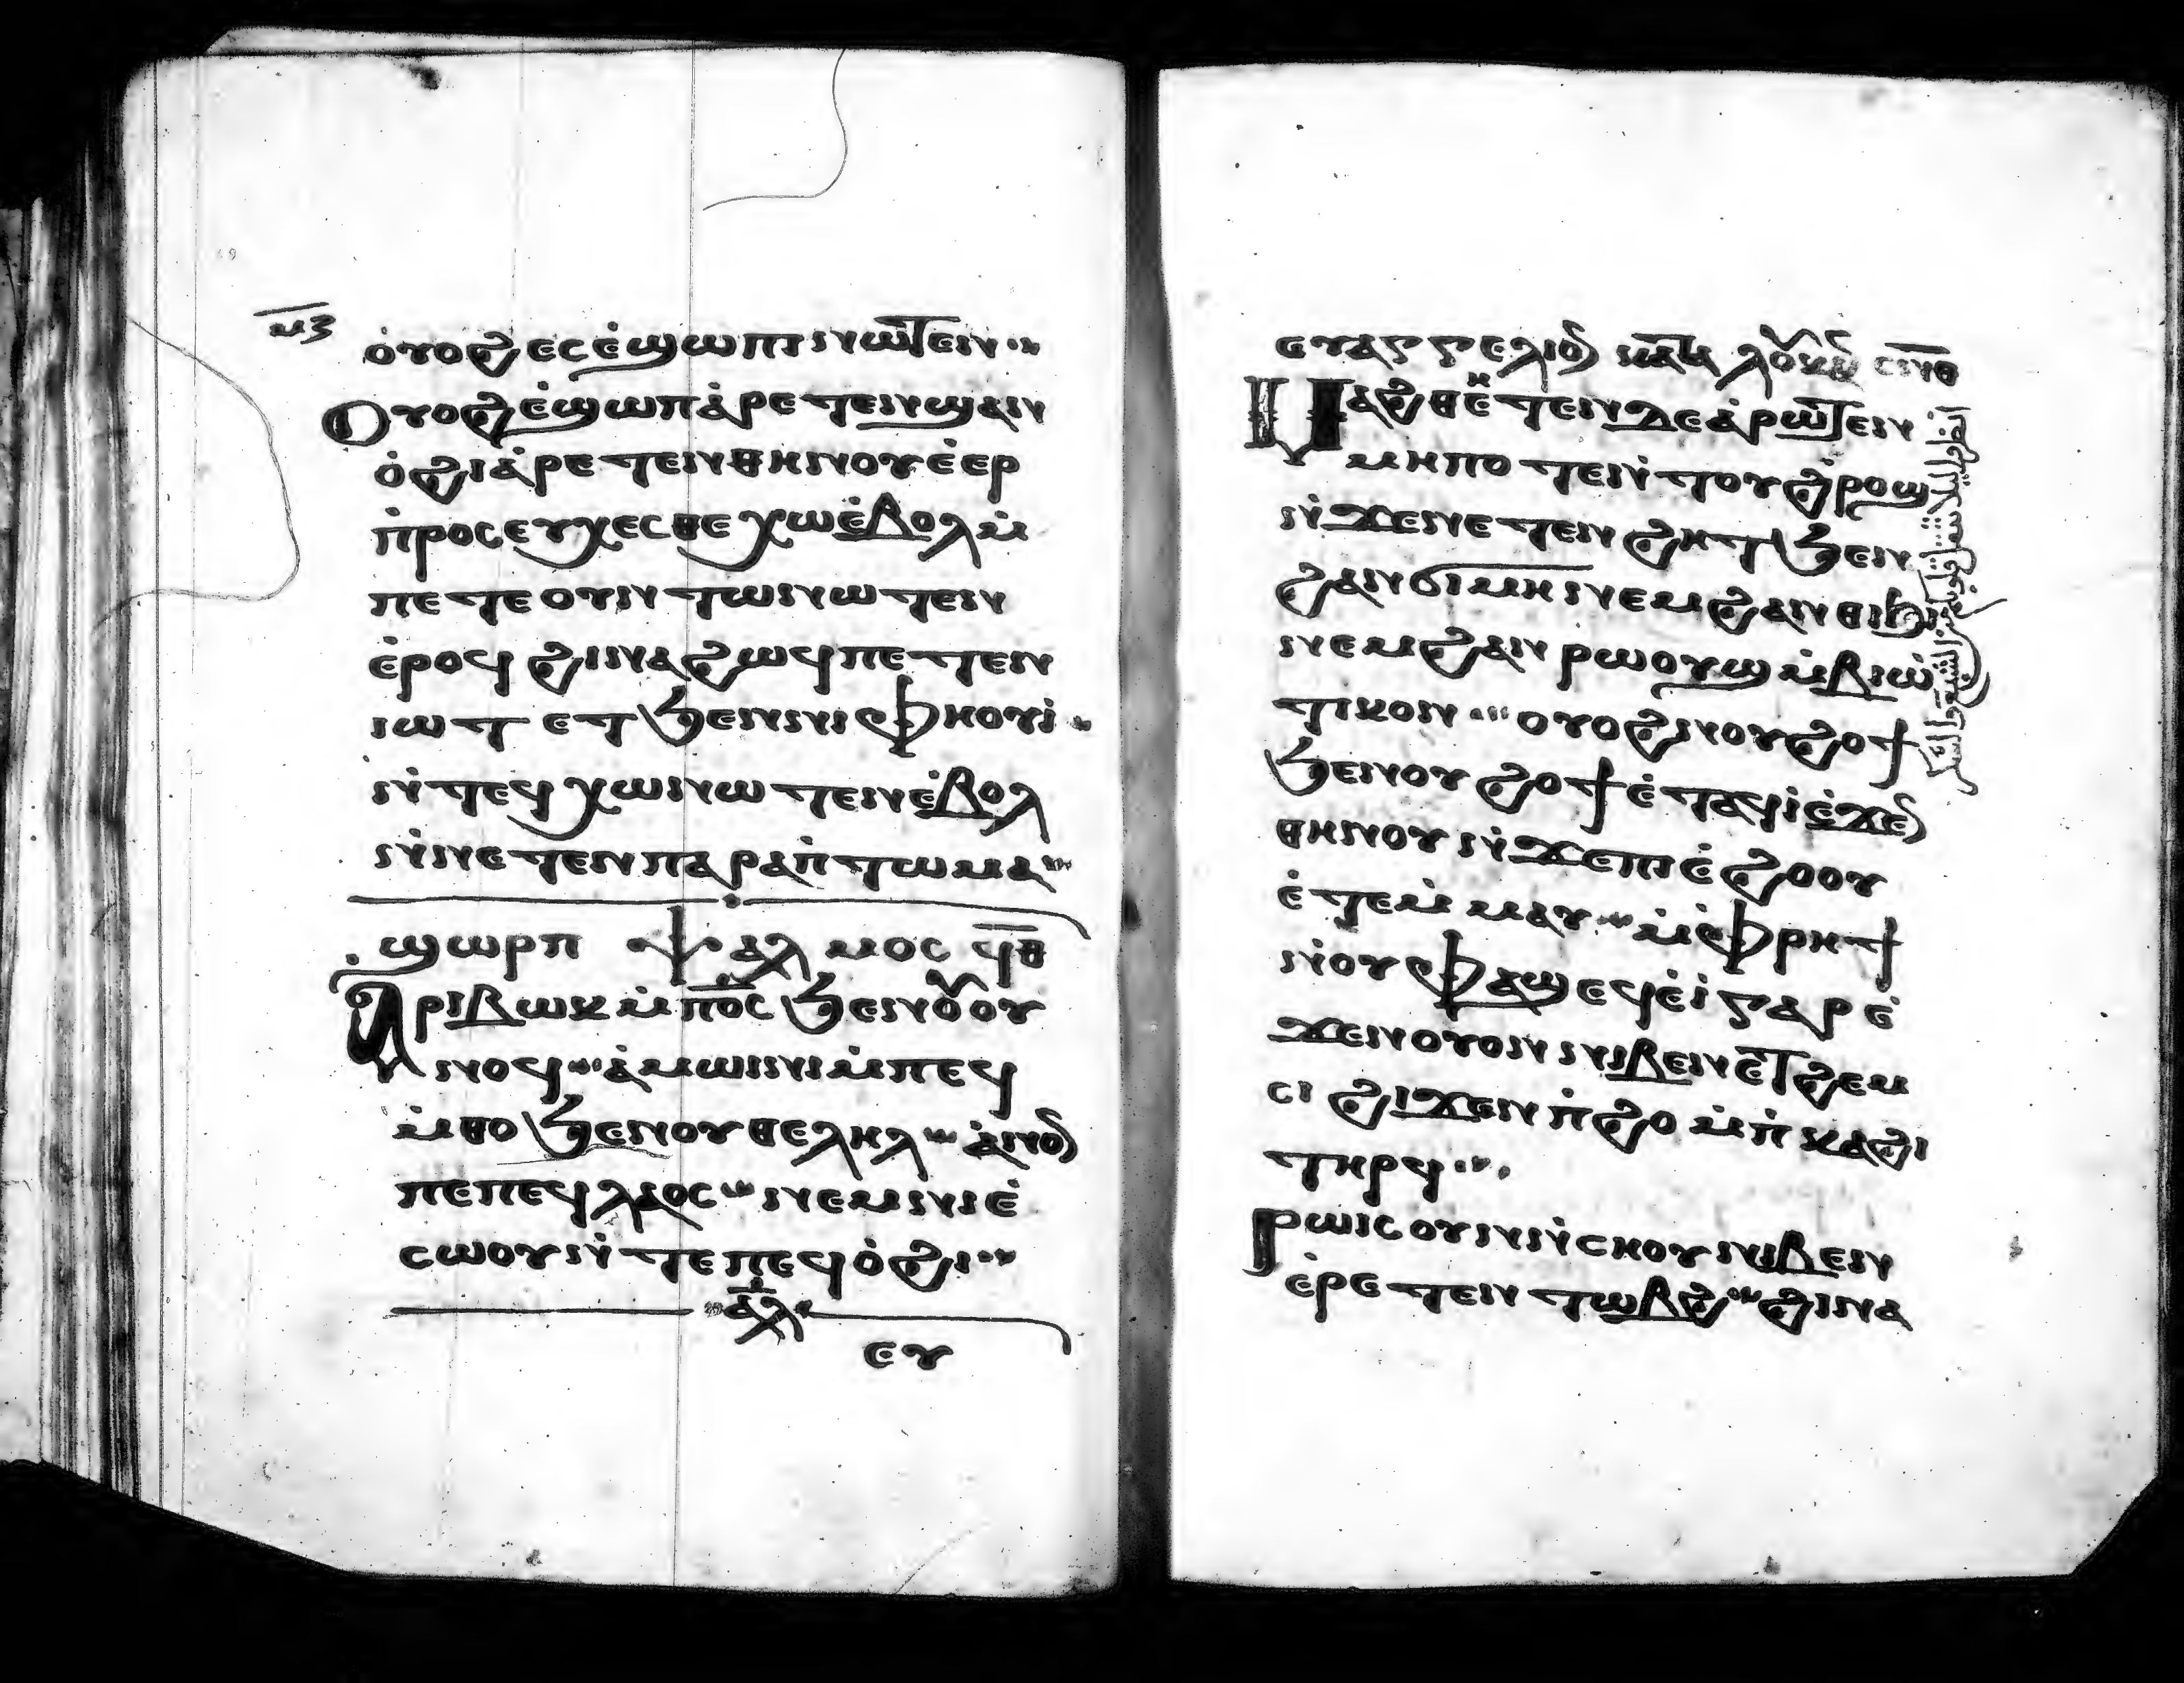 ⲙ̅ⲍ̅
ⲟ̀ⲩⲟϩ ⲉⲥⲉ̀ϣⲱⲡⲓ ⲛⲱⲧⲉⲛ
Ⲟⲩⲟϩ ⲉ̀ϣⲱⲡ ⲁ̀ⲣⲉⲧⲉⲛϣⲁⲛ
ⲟ̀ϩⲓ ⲁ̀ⲣⲉⲧⲉⲛⲑⲏⲛⲟⲩ ⲉ̀ⲉⲣ
ⲡ̀ⲣⲟⲥⲉⲩⲭⲉⲥⲑⲉ ⲭⲱ ⲉ̀ⲃⲟⲗ ⲙ̀
ⲡⲉⲧⲉ ⲟⲩⲛⲧⲱⲛⲱⲧⲉⲛ
ⲉ̀ⲣⲟϥ ϩⲓⲛⲁ ϩⲱϥ ⲡⲉⲧⲉⲛ
ⲓⲱⲧ ⲉⲧϧⲉⲛ ⲛⲓⲫⲏⲟⲩⲓ̀
ⲛ̀ⲧⲉϥⲭⲱ ⲛⲱⲧⲉⲛ ⲉ̀ⲃⲟⲗ
ⲛ̀ⲛⲉⲧⲉⲛⲡⲁⲣⲁⲡ̀ⲧⲱⲙⲁ
ϣⲱⲣⲡ ⲯⲁⲗⲙⲟⲥ ϥ̅ⲑ̅
Ⲁⲣⲓⲃⲱⲕ ⲙ̀ⲡⲟ̅ⲥ̅ ϧⲉⲛ ⲟⲩⲟⲩ
ⲛⲟϥ ⲁ̀ⲙⲱⲓⲛⲓ ⲙ̀ⲡⲉϥ
ⲙ̀ⲑⲟ ϧⲉⲛ ⲟⲩⲑⲉⲗⲏⲗ ⲁ̀ⲛⲟⲛ
ⲡⲉ ⲡⲉϥⲗⲁⲟⲥ ⲛⲉⲙ ⲛⲓⲉ̀
ⲥⲱⲟⲩ ⲛ̀ⲧⲉ ⲡⲉϥⲟ̀ϩⲓ
ⲁⲗ
ⲉⲩ
ⲉⲩⲁⲅⲅⲉⲗⲓⲟⲛ ⲕⲁⲧⲁ ⲗⲟⲩⲕⲁⲛ ⲥ̅ⲛ̅ⲑ̅
Ⲙⲁϩⲑⲉⲧⲉⲛ ⲇⲉ ⲁ̀ⲣⲱⲧⲉⲛ
ⲙⲏⲡⲟⲧⲉ ⲛ̀ⲧⲟⲩϩ̀ⲣⲟϣ
ⲛ̀ϫⲉ ⲛⲉⲧⲉⲛϩⲏⲧ ϧⲉⲛ
ϩⲁⲛϭⲓⲙⲏ ⲛⲉⲙ ϩⲁⲛⲑⲓϧⲓ
ⲛⲉⲙ ϩⲁⲛⲣⲱⲟⲩϣ ⲙ̀ⲃⲓⲱ̀
ⲧⲓⲕⲟⲛ ⲟⲩⲟϩ ⲛⲟⲩϩⲟϯ
ϧⲉⲛ ⲟⲩϩⲟϯ ⲉ̀ⲧⲁϥⲓ̀ ⲉ̀ϫⲉⲛ
ⲑⲏⲛⲟⲩ ⲛ̀ϫⲉ ⲡⲓⲉ̀ϩⲟⲟⲩ
ⲉ̀ⲧⲉⲙ̀ⲙⲁⲩ ⲙ̀ⲫ̀ⲣⲏϯ
ⲛ̀ⲟⲩⲫⲁϣ ⲉϥⲉ̀ⲓ̀ ⲅⲁⲣ ⲉ̀
ϫⲉⲛ ⲟⲩⲟⲛ ⲛⲓⲃⲉⲛ ⲉⲧϩⲉⲙ
ⲥⲓ ϩⲓϫⲉⲛ ⲡ̀ϩⲟ ⲙ̀ⲡ̀ⲕⲁϩⲓ
ⲧⲏⲣϥ
Ⲣⲱⲓⲥ ⲟⲩⲛ ⲛ̀ⲥⲏⲟⲩ ⲛⲓⲃⲉⲛ
ⲉ̀ⲣⲉⲧⲉⲛⲧⲱⲃϩ ϩⲓⲛⲁ